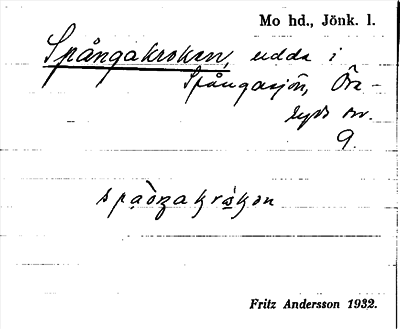 Mo hd., Jönk. l.
Spångakroken, udde i
Spångasjön, Öre-
ryds sn.
9.
Fritz Andersson 1932.